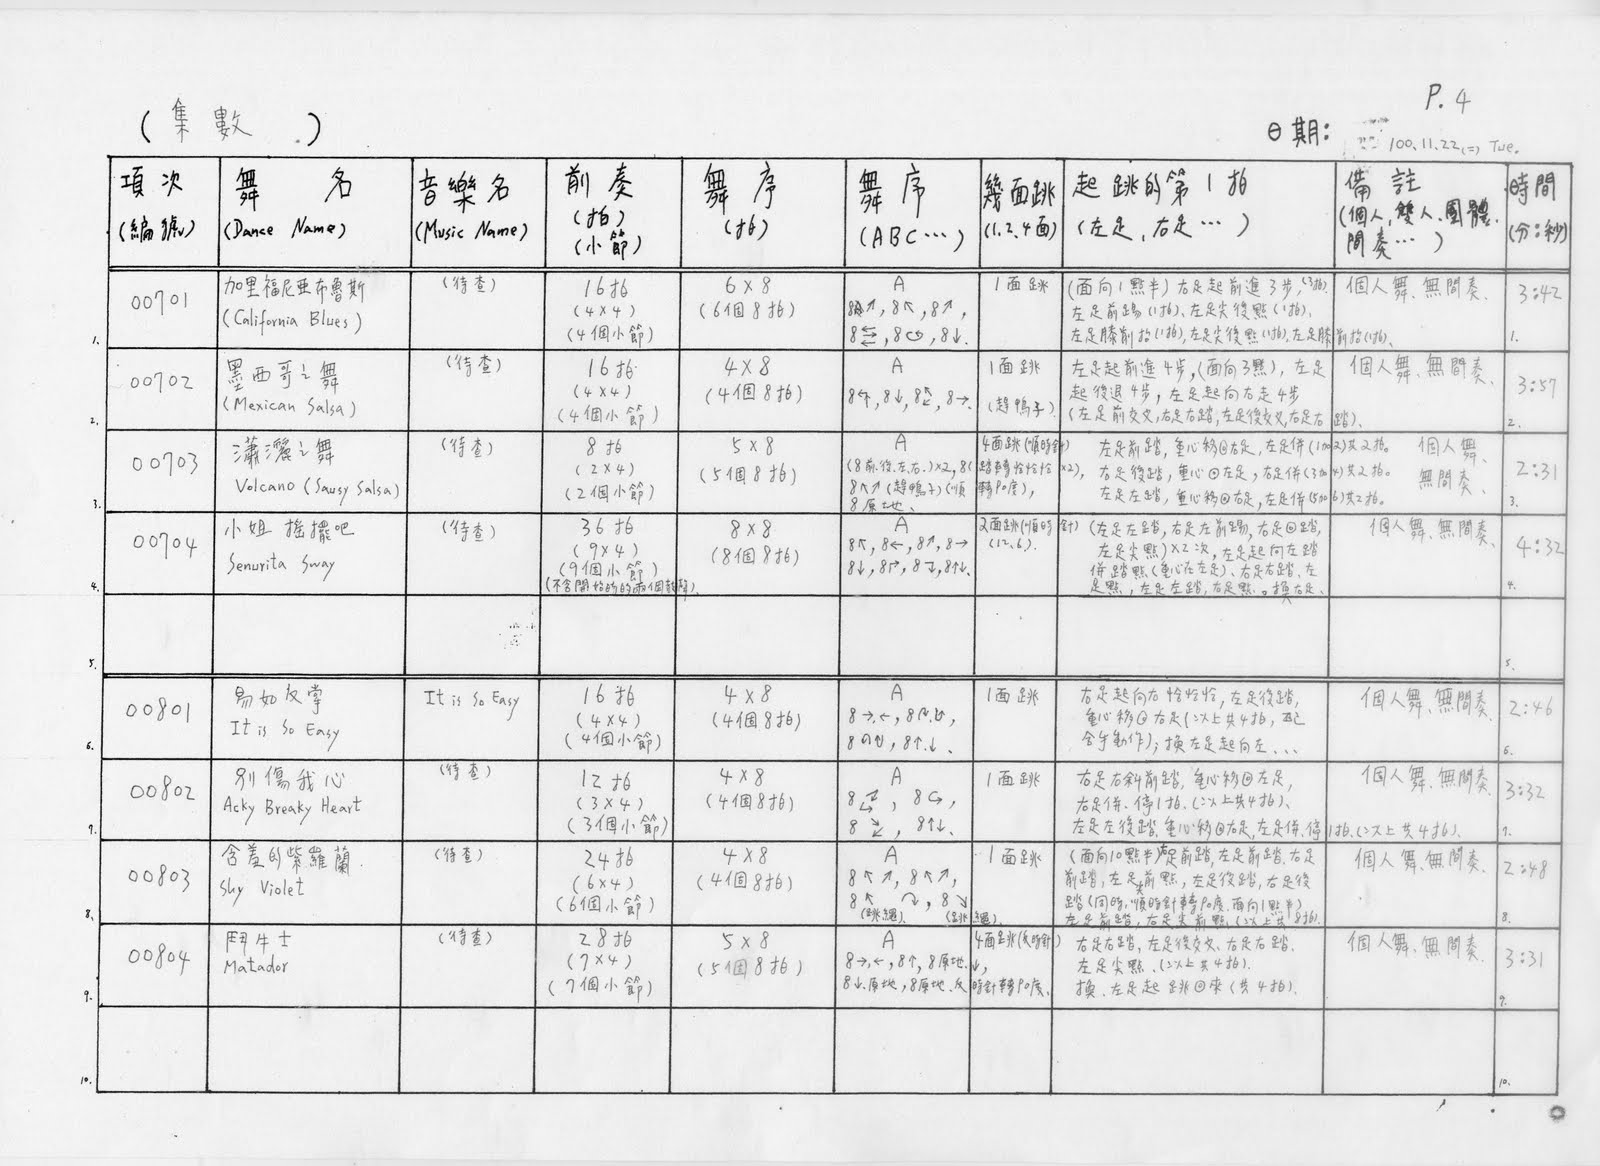 P. 4
(集數 )
日期: 100.11.22(二) Tue.
項次 (編號)
舞名 (Dance Name)
音樂名 (Music Name)
前奏 (拍) (小節)
舞序 (拍)
舞序 (ABC…)
幾面跳 (1,2,4面)
起跳的第1拍 (左足,右足…)
備註 (個人,雙人,團體,間奏…)
時間 (分:秒)
00701
1.
加里福尼亞布魯斯
(California Blues)
(待查)
16拍
(4×4)
(4個小節)
6×8
(6個8拍)
A
8↗, 8↖, 8↗,
8⇆, 8, 8↓.
1面跳
(面向1點半)右足起前進3步,(3拍).
左足前踢(1拍)、左足尖後點(1拍)、
左足膝前抬(1拍),左足尖後點(1拍),左足膝前抬(1拍)、
個人舞、無間奏、
3:42
1.
00702
2.
墨西哥之舞
(Mexican Salsa)
(待查)
16拍
(4×4)
(4個小節)
4×8
(4個8拍)
A
1面跳
(趕鴨子)
左足起前進4步,(面向3點),左足
起後退4步,左足起向右走4步
(左足前交叉,右足右踏,左足後交叉,右足右踏)、
個人舞、無間奏、
3:57
2.
00703
3.
瀟灑之舞
Volcano (Sausy Salsa)
(待查)
8拍
(2×4)
(2個小節)
5×8
(5個8拍)
A
(8前.後.左.右.)×2, 8(踏轉恰恰恰×2),
8↖↗(趕鴨子)(順轉90度),
8原地、
4面跳(順時針)
左足前踏,重心移回右足,左足併(1002)共2拍。
右足後踏,重心回左足,右足併(3004)共2拍。
左足左踏,重心移回右足,左足併(5006)共2拍。
個人舞、
無間奏、
2:31
3.
00704
4.
小姐搖擺吧
Senurita Sway
(待查)
36拍
(9×4)
(9個小節)
8×8
(8個8拍)
A
8↖, 8←, 8↗, 8→
2面跳(順時針)
(12,6).
(左足左踏,右足左前踢,右足回踏,
左足尖點)×2次,左足起向左踏
併踏點(重心在左足)、右足右踏、左
足點,左足左踏,右足點。換右足、
個人舞、無間奏、
4:32
4.
5.
5.
00801
6.
易如反掌
It is So Easy
It is So Easy
16拍
(4×4)
(4個小節)
4×8
(4個8拍)
A
1面跳
右足起向右恰恰恰,左足後踏,
重心移回右足(以上共4拍,配
合手動作);換左足起向左...
個人舞、無間奏、
2:46
6.
00802
7.
別傷我心
Acky Breaky Heart
(待查)
12拍
(3×4)
(3個小節)
4×8
(4個8拍)
A
1面跳
右足右斜前踏,重心移回左足,
右足併、停1拍、(以上共4拍)、
左足左後踏,重心移回右足,左足併、停1拍、(以上共4拍)、
個人舞、無間奏、
3:32
7.
00803
8.
含羞的紫羅蘭
Shy Violet
(待查)
24拍
(6×4)
(6個小節)
4×8
(4個8拍)
A
8↖↗, 8↖↗,
(跳繩) (跳繩)
1面跳
(面向10點半)右足前踏,左足前踏、右足
前踏,左足尖前點,左足後踏,右足後
踏(同時,順時針轉90度,面向1點半)
左足前踏,右足尖前點、(以上共8拍)
個人舞、無間奏、
2:48
8.
00804
9.
鬥牛士
Matador
(待查)
28拍
(7×4)
(7個小節)
5×8
(5個8拍)
A
8→.←, 8↑, 8原地.↓,
8↓.原地, 8原地.反時針轉90度、
4面跳(反時針)
右足右踏,左足後交叉、右足右踏、
左足尖點、(以上共4拍).
換、左足起跳回來(共4拍).
個人舞、無間奏、
3:31
9.
10.
10.